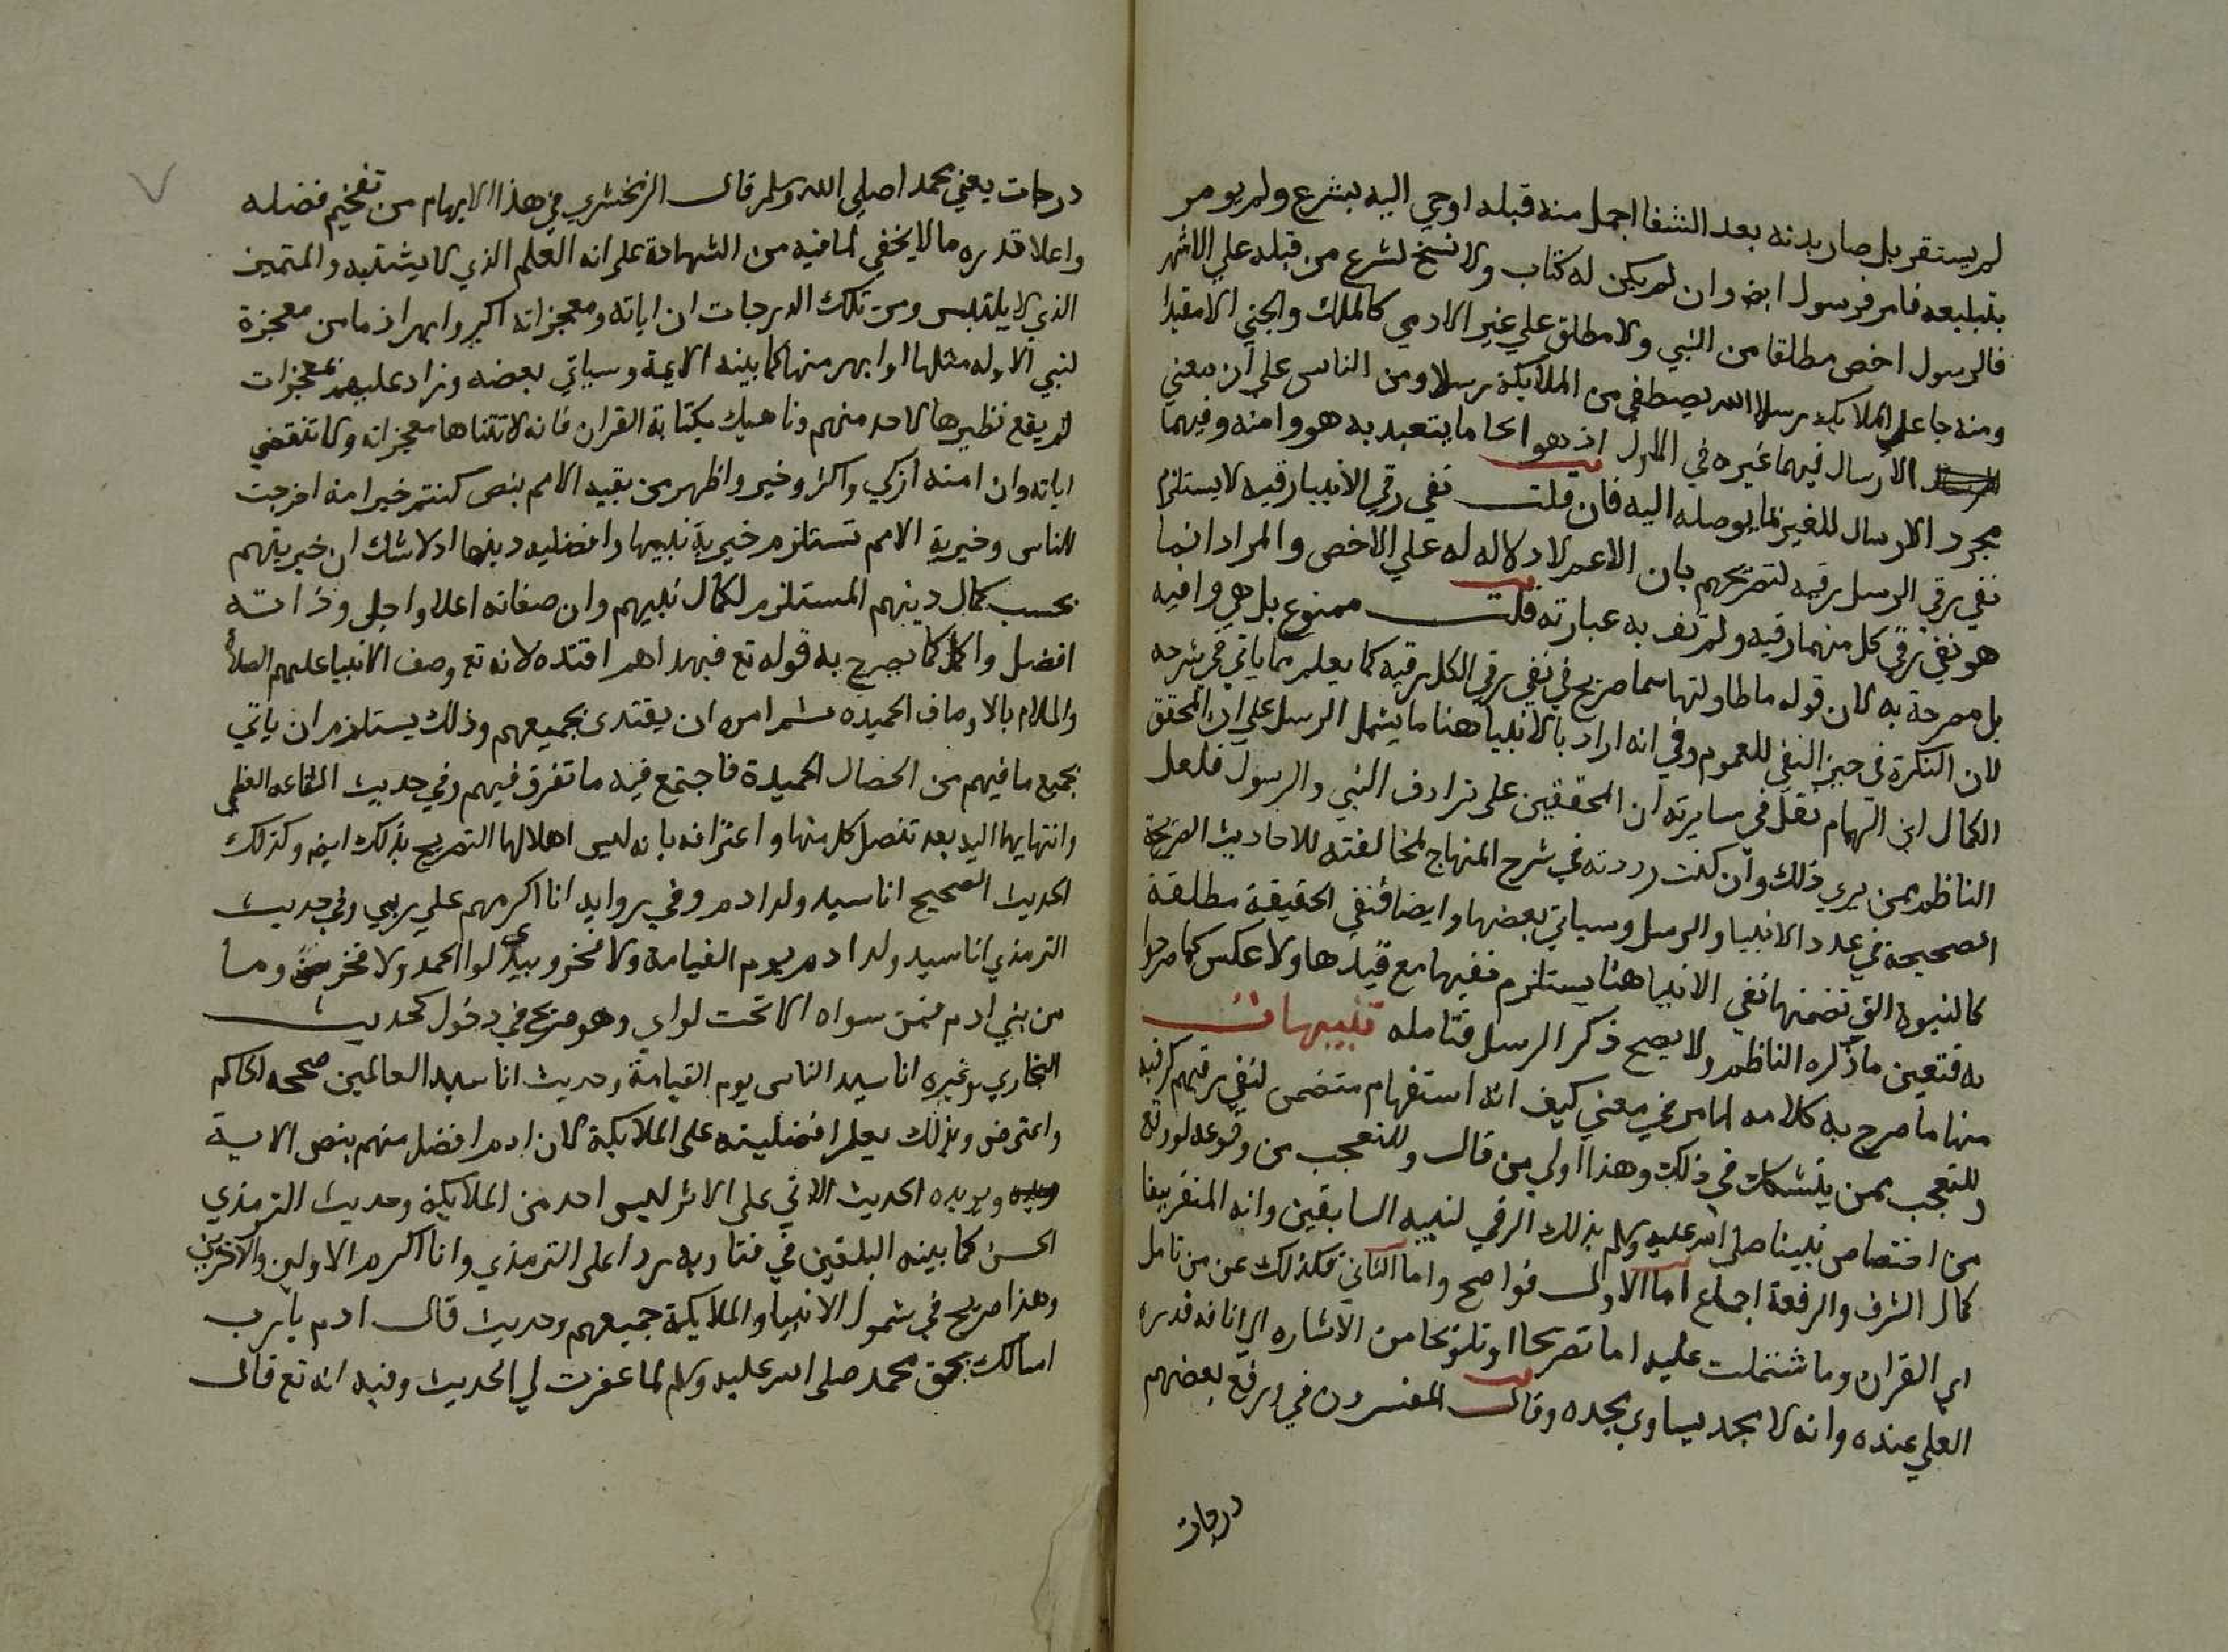 لم يستقر بل صار بدنه بعد الشفا اجمل منه قبله اوحي اليه بشرع ولم يومر
بتبليغه فامر فرسول ايض وان لم يكن له كتاب ولا نسخ لشرع من قبله علي الاشهر
فالرسول اخص مطلقا من النبي ولا مطلق علي غير الادمي كالملك والجني الا مقيدا
ومنه جاعل الملايكه رسلا الله يصطفي من الملايكة رسلا ومن الناس علي ان معني
الارسال فيهما غيره في الاول اذ هو ايحا ما يتعبد به هو وامته وفيهما
مجرد الارسال للغير بما يوصله اليه فان قلت نفي رقي الانبيا رقيه لا يستلزم
نفي رقي الرسل رقيه لتصريحهم بان الاعم لا دلاله له علي الاخص والمراد انما
هو نفي رقي كل منهما رقيه ولم تف به عبارته قلت ممنوع بل هي وافيه
بل مصرحة به لان قوله ما طاولتها سما صريح في نفي رقي الكل رقيه كما يعلم مما ياتي في شرحه
لان النكرة في حيز النفي للعموم وفي انه اراد بالانبيا هنا ما يشمل الرسل علي ان المحقق
الكمال ابن الهمام نقل في سايرته ان المحققين على ترادف النبي والرسول فلعل
الناظم ممن يري ذلك وان كنت رددته في شرح المنهاج لمخالفته للاحاديث الصريحة
الصحيحة في عدد الانبيا والرسل وسياتي بعضها وايضا فنفي الحقيقة مطلقة
كالنبوة التي تضمنها نفي الانبيا هنا يستلزم نفيها مع قيدها ولا عكس كما صرحوا
به فتعين ما ذكره الناظم ولا يصح ذكر الرسل فتامله تنبيهات
منها ما صرح به كلامه المار في معني كيف انه استفهام متضمن لنفي رقيهم كرقيه
وللتعجب ممن يتشكك في ذلك وهذا اولي من قال وللتعجب من وقوعه لو وقع
من اختصاص نبينا صلى الله عليه وسلم بذلك الرقي لنبيه السابقين وانه المنفرد بها
كمال الشرف والرفعة اجماع اما الاول فواضح واما الثاني فكذلك عن من تامل
اي القران وما شتملت عليه اما تصريحا او تلويحا من الاشاره الي انافه قدره
العلي عنده وانه لا مجد يساوي مجده وقال المفسرون في ورفع بعضهم
درجات
درجات يعني محمدا صلي الله وسلم قال الزمخشري في هذا الابهام من تفخيم فضله
واعلا قدره ما لا يخفي لما فيه من الشهادة على انه العلم الذي لا يشتبه والمتميز
الذي لا يلتبس ومن تلك الدرجات ان اياته ومعجزاته اكبر وابهر اذ ما من معجزة
لنبي الا وله مثلها او ابهر منها كما بينه الايمة وسياتي بعضه وزاد عليهم بمعجزات
لم يقع نظيرها لاحد منهم وناهيك بكتابة القران فانه لا تتناها معجزاته ولا تنقضي
اياته وان امته ازكي واكثر وخير واظهر من بقيه الامم بنص كنتم خير امة اخرجت
للناس وخيرية الامم تستلزم خيرية نبيها وافضليه دينها اذ لا شك ان خيريتهم
بحسب كمال دينهم المستلزم لكمال نبيهم وان صفاته اعلا واجل وذاته
افضل واكمل كما يصرح به قوله تع فبهداهم اقتده لانه تع وصف الانبيا عليهم الصلاة
والسلام بالاوصاف الحميده ثم امره ان يقتدى بجميعهم وذلك يستلزم ان ياتي
بجميع ما فيهم من الخصال الحميدة فاجتمع فيه ما تفرق فيهم وفي حديث الشفاعه العظمي
وانتهايها اليه بعد تنصل كل منها واعترافه بانه ليس اهلا لها التصريح بذلك ايض وكذلك
الحديث الصحيح انا سيد ولد ادم وفي روايه انا اكرمهم علي ربي وفي حديث
الترمذي انا سيد ولد ادم يوم القيامة ولا فخر وبيدي لوا الحمد ولا فخر وما
من بني ادم فمن سواه الا تحت لواي وهو صريح في دخول كحديث
البخاري وغيره انا سيد الناس يوم القيامة وحديث انا سيد العالمين صححه الحاكم
واعترض وبذلك يعلم افضليته على الملايكة لان ادم افضل منهم بنص الاية
ويويده الحديث الاتي على الاثر ليس احد من الملايكة وحديث الترمذي
الحسن كما بينه البلقين في فتاويه ردا على الترمذي وانا اكرم الاولين والاخرين
وهذا صريح في شمول الانبيا والملايكة جميعهم وحديث قال ادم يا رب
اسالك بحق محمد صلى الله عليه وسلم لما غفرت لي الحديث وفيه انه تع قال